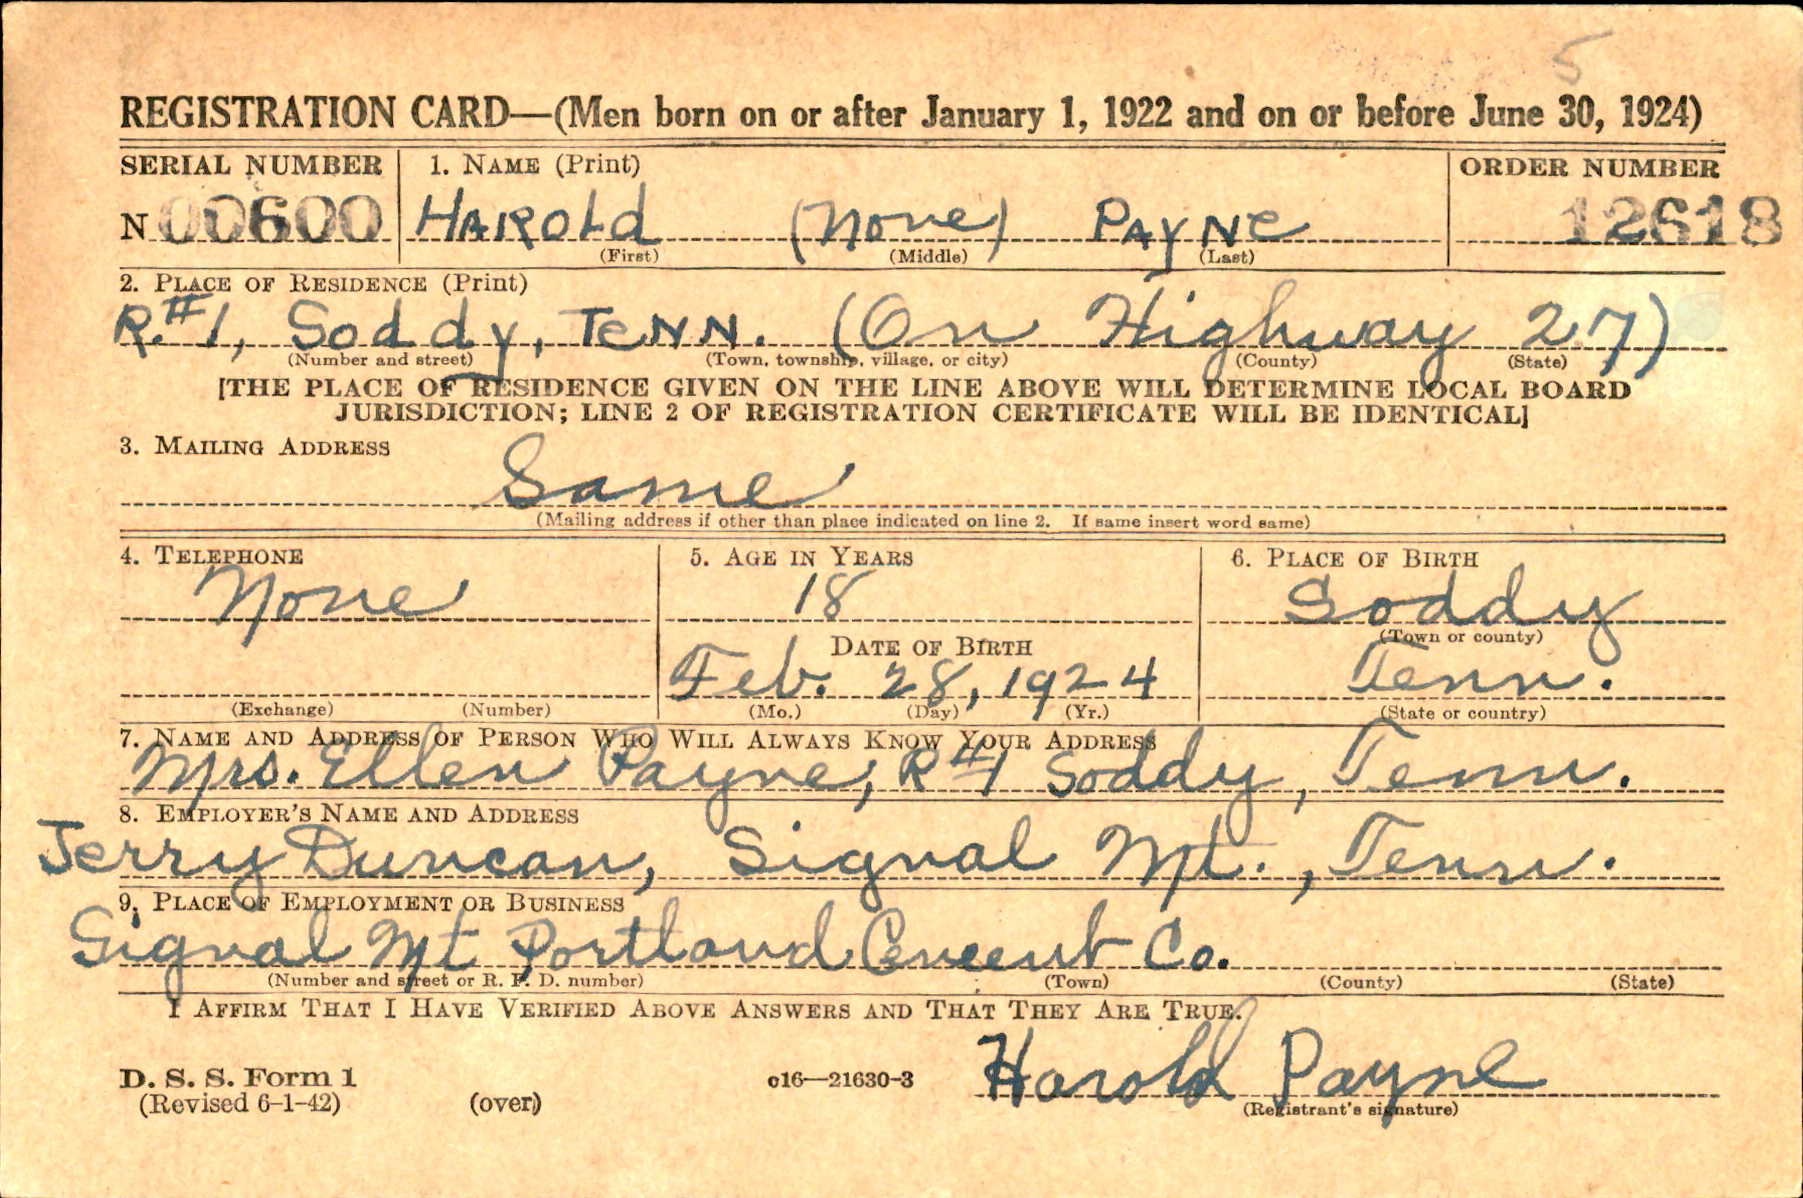 5
REGISTRATION CARD—(Men born on or after January 1, 1922 and on or before June 30, 1924)
SERIAL NUMBER 1. NAME (Print) ORDER NUMBER
N 00600 HAROLd (None) PAYNe 12618
(First) (Middle) (Last)
2. PLACE OF RESIDENCE (Print)
R.#1, Soddy, TeNN. (On Highway 27)
(Number and street) (Town, township, village, or city) (County) (State)
[THE PLACE OF RESIDENCE GIVEN ON THE LINE ABOVE WILL DETERMINE LOCAL BOARD
JURISDICTION; LINE 2 OF REGISTRATION CERTIFICATE WILL BE IDENTICAL]
3. MAILING ADDRESS
Same
(Mailing address if other than place indicated on line 2. If same insert word same)
4. TELEPHONE 5. AGE IN YEARS 6. PLACE OF BIRTH
None 18 Soddy
DATE OF BIRTH (Town or county)
Feb. 28, 1924 Tenn.
(Exchange) (Number) (Mo.) (Day) (Yr.) (State or country)
7. NAME AND ADDRESS OF PERSON WHO WILL ALWAYS KNOW YOUR ADDRESS
Mrs. Ellen Payne, R#1 Soddy, Tenn.
8. EMPLOYER'S NAME AND ADDRESS
Jerry Duncan, Signal Mt., Tenn.
9. PLACE OF EMPLOYMENT OR BUSINESS
Signal Mt Portland Cement Co.
(Number and street or R. F. D. number) (Town) (County) (State)
I AFFIRM THAT I HAVE VERIFIED ABOVE ANSWERS AND THAT THEY ARE TRUE.
D. S. S. Form 1 c16—21630-3 Harold Payne
(Revised 6-1-42) (over) (Registrant's signature)